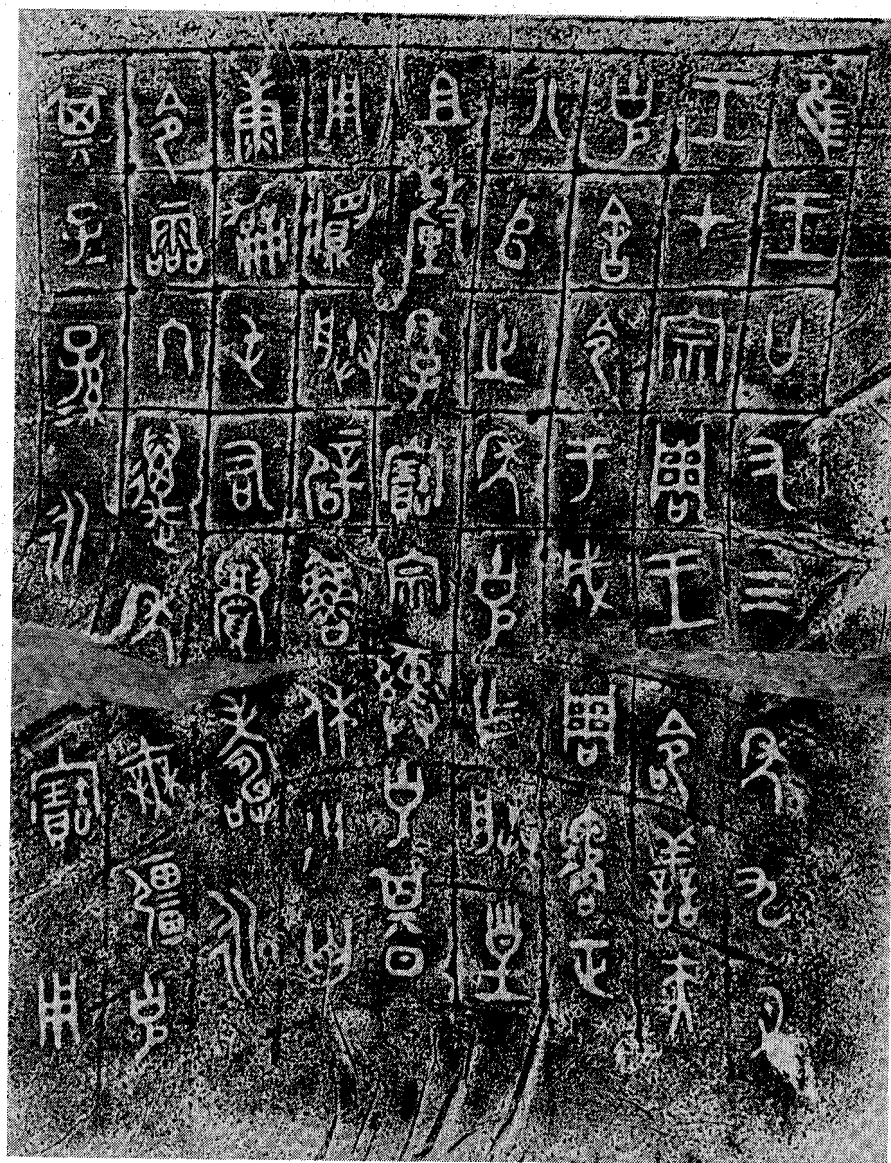 隹王廿又三年九月
王才宗周王令善夫
克舍令于成周遹正
八𠂤之年克乍朕皇
且釐季寶宗彝克其日
用䵼朕辟魯休用匄
康勵屯右眉壽永
令霝冬萬年無疆克
其子=孫=永寶用